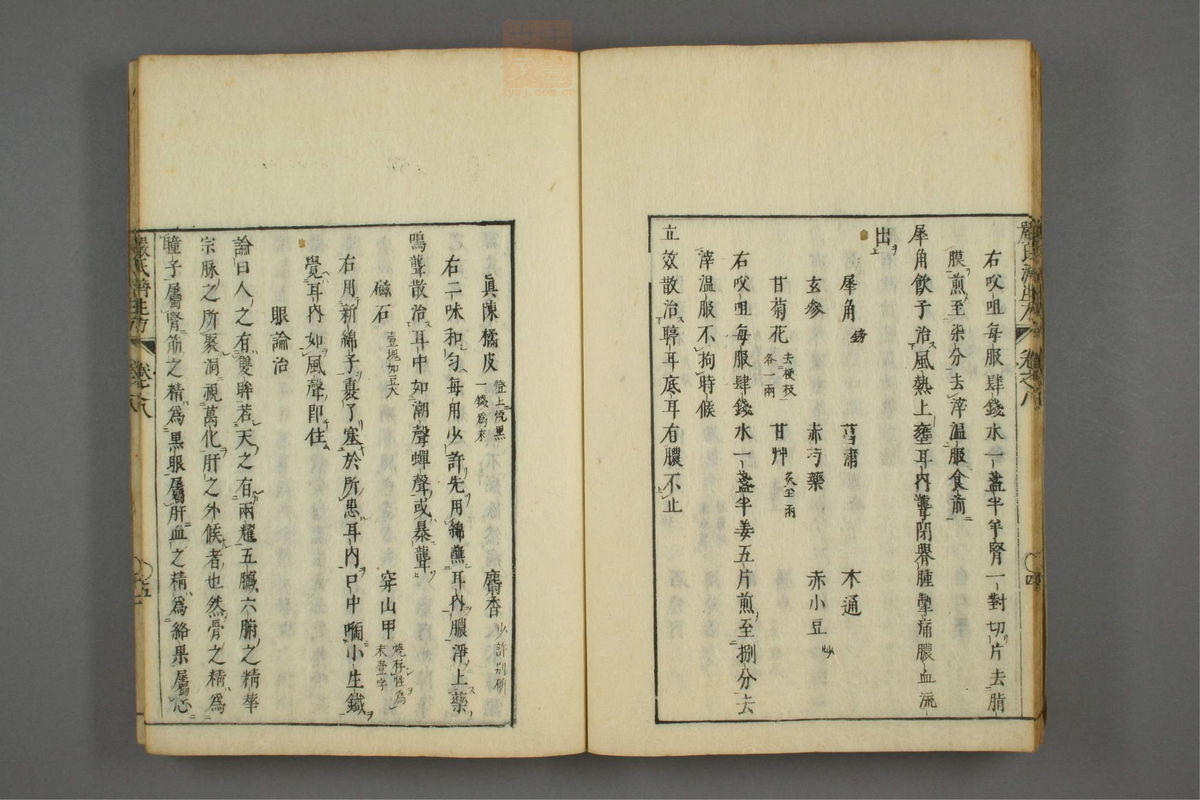 右㕮咀每服肆錢水一盞半羊腎一對切片去脂
膜煎至柒分去滓溫服食前
犀角飲子治風熱上壅耳內聾閉腫攣痛膿血流
出
犀角 鎊 菖蒲 木通
玄參 赤芍藥 赤小豆 炒
甘菊花 去梗枝各一兩 甘艸 炙 兩
右㕮咀每服肆錢水一盞半姜五片煎至捌分去
滓溫服不拘時候
立效散治聤耳底耳有膿不止
嚴氏濟生方 卷之八 四
真陳橘皮 燈上燒黑一錢為末 麝香 少許別研
右二味和勻每用少許先用綿蘸耳內膿淨上藥
鳴聾散治耳中如潮聲蟬聲或暴聾
磁石 壹塊如豆大 穿山甲 燒存性為末壹字
右用新綿子裹了塞於所患耳內口中啣小生鐵
覺耳內如風聲即住
眼論治
論曰人之有雙眸若天之有兩耀五臟六腑之精華
宗脉之所聚洞視萬化肝之外候者也然骨之精為
瞳子屬腎筋之精為黑眼屬肝血之精為絡果屬心
嚴氏濟生方 卷之八 五